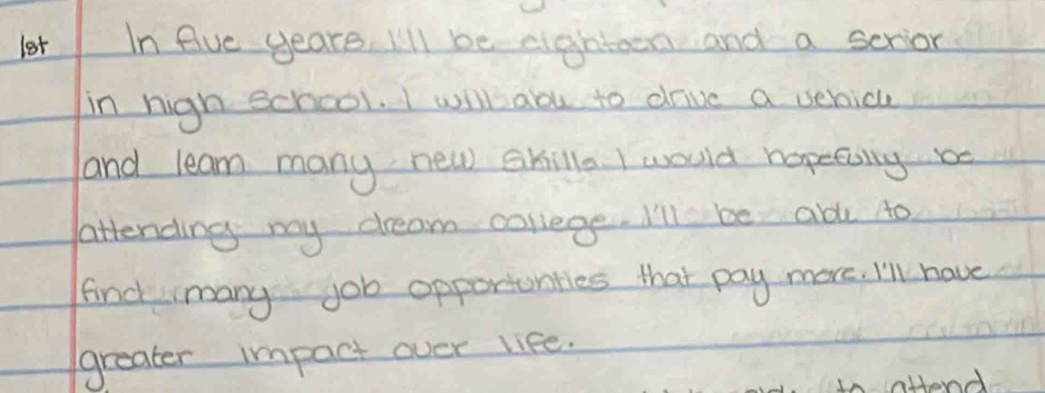 1st In five years, I'll be eighteen and a senior
in high school. I will able to drive a vehicle
and learn many new skills. I would hopefully be
attending my dream college. I'll be able to
find many job opportunties that pay more. I'll have
greater impact over life.
to attend